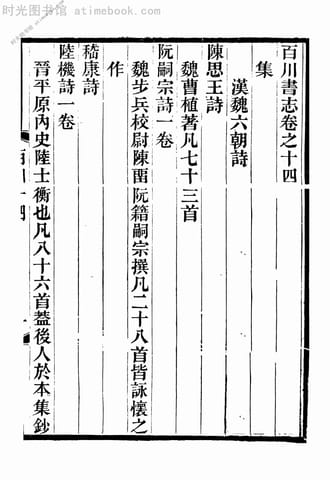 时光图书馆 - atimebook.com
百川書志卷之十四
集
漢魏六朝詩
陳思王詩
魏曹植著凡七十三首
阮嗣宗詩一卷
魏步兵校尉陳留阮籍嗣宗撰凡二十八首皆詠懷之
作
嵇康詩
陸機詩一卷
晉平原內史陸士衡也凡八十六首蓋後人於本集鈔